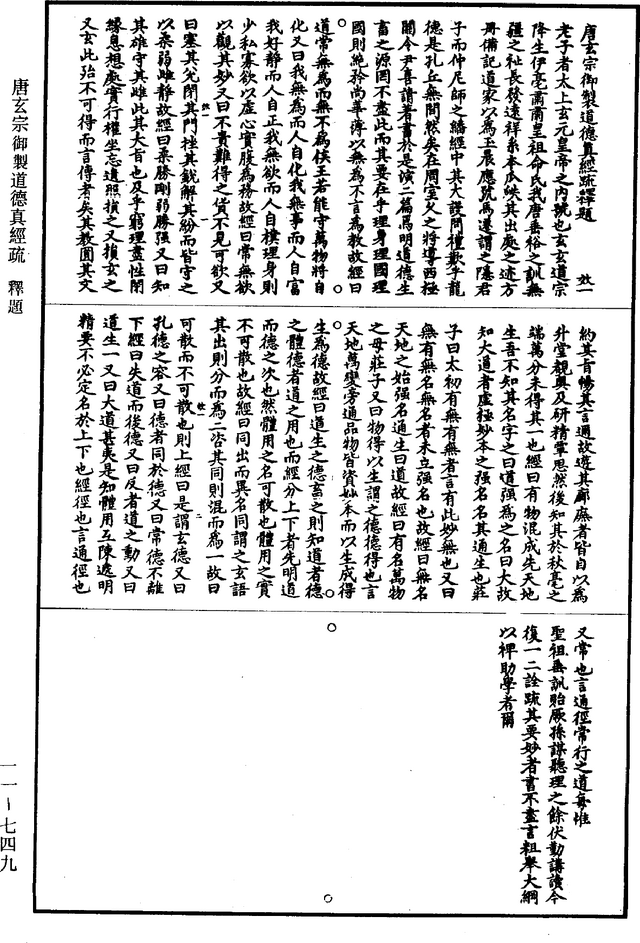 唐玄宗御製道德真經疏釋題
效一
老子者太上玄元皇帝之內號也玄玄道宗
降生伊亳肅肅皇祖命氏我唐垂裕之訓無
疆之祉長發遠祥系本瓜瓞其出處之迹方
冊備記道家以為玉晨應號馬遷謂之隱君
子而仲尼師之繙經中其大謾問禮歎乎龍
德是孔丘無間然矣在周室久之將導西極
關令尹喜請著書於是演二篇焉明道德生
畜之源罔不盡此而其要在乎理身理國理
國則絕矜尚華薄以無為不言為教故經曰
道常無為而無不為侯王若能守萬物將自
化又曰我無為而人自化我無事而人自富
我好靜而人自正我無欲而人自樸理身則
少私寡欲以虛心實腹為務故經曰常無欲
以觀其妙又曰不貴難得之貨不見可欲又
曰塞其兌閉其門挫其銳解其紛而皆守之
以柔弱雌靜故經曰柔勝剛弱勝強又曰知
其雄守其雌此其大旨也及乎窮理盡性閉
緣息想處實行權坐忘遺照損之又損玄之
又玄此殆不可得而言傳者矣其教圓其文
約其旨暢其言邇故遊其廊廡者皆自以為
升堂睹奧及研精覃思然後知其於秋毫之
端萬分未得其一也經曰有物混成先天地
生吾不知其名字之曰道強為之名曰大故
知大道者虛極妙本之強名名其通生也莊
子曰太初有無有無者言有此妙無也又曰
無有無名無名者未立強名也故經曰無名
天地之始強名通生曰道故經曰有名萬物
之母莊子又曰物得以生謂之德德得也言
天地萬變旁通品物皆資妙本而以生成得
生為德故經曰道生之德畜之則知道者德
之體德者道之用也而經分上下者先明道
而德之次也然體用之名可散也體用之實
不可散也故經曰同出而異名同謂之玄語
其出則分而為二咨其同則混而為一故曰
可散而不可散也則上經曰是謂玄德又曰
孔德之容又曰德者同於德又曰常德不離
下經曰失道而後德又曰反者道之動又曰
道生一又曰大道甚夷是知體用互陳遞明
精要不必定名於上下也經徑也言通徑也
又常也言通徑常行之道每惟
聖祖垂訓貽厥孫謀聽理之餘伏勤講讀今
復一二詮疏其要妙者書不盡言粗舉大綱
以裨助學者爾
唐玄宗御製道德真經疏 釋題
一一-七四九